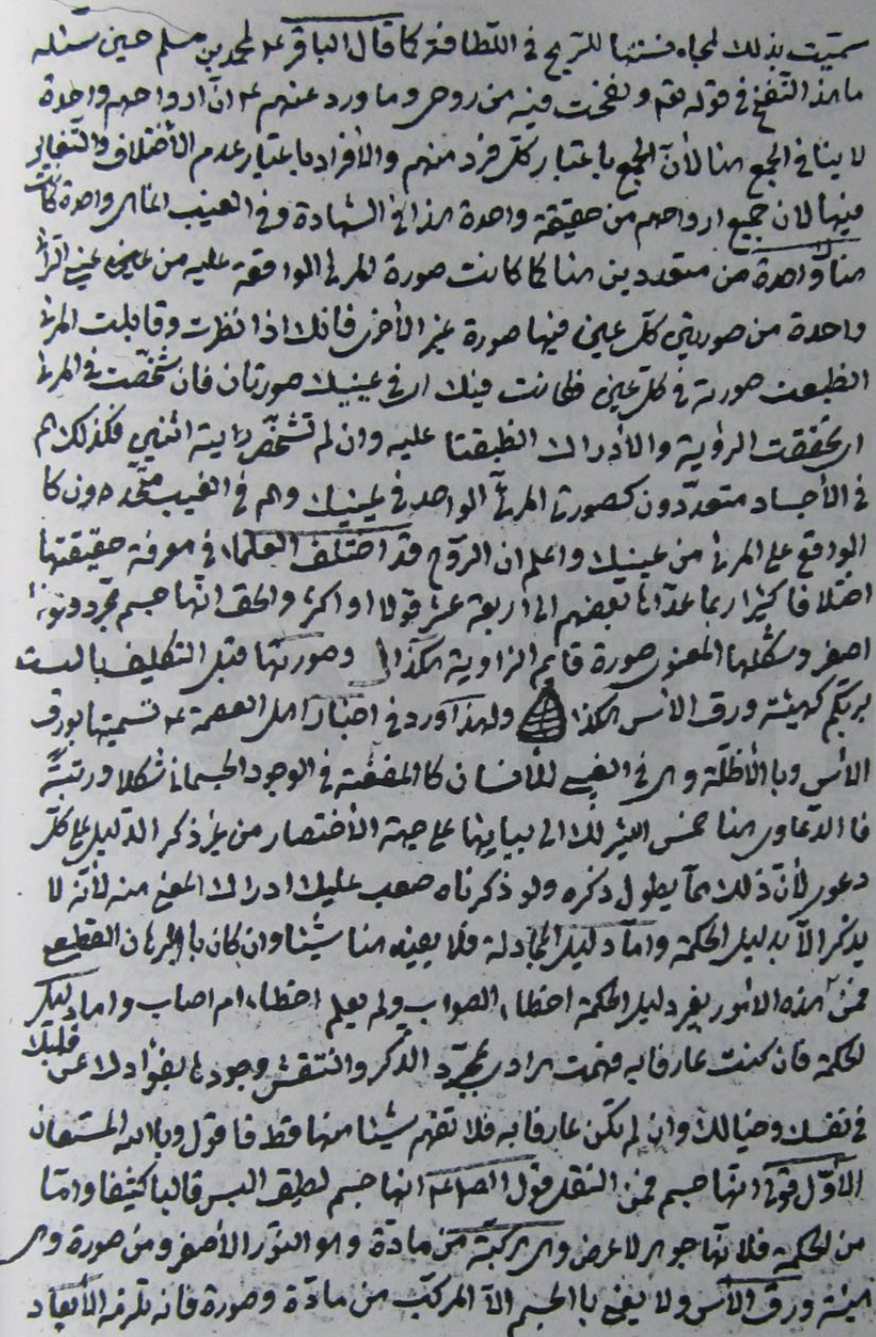 سميت بذلك لمجانستها للريح في اللطافة كما قال الباقر ع لمحمد بن مسلم حين سئله
ما هذا النفخ في قوله تعه ونفخت فيه من روحي وما ورد عنهم ع ان ارواحهم واحدة
لا ينافي الجمع هنا لأن الجمع باعتبار كل فرد منهم والافراد باعتبار عدم الأختلاف والتغاير
فيها لان جميع ارواحهم من حقيقة واحدة هذا في الشهادة وفي الغيب واحدة كانت
هنا واحدة من متعددين هنا كما كانت صورة المرئي الواقعة عليه من
واحدة من صورتي كل عين فيها صورة غير الأخرى فانك اذا نظرت وقابلت المرئي
انطبعت صورته في كل عين فكانت فيك اى في عينيك صورتان فان شخصت في المرئي
اى تحققت الرؤية والأدراك انطبقتا عليه وان لم تشخص رايته اثنين فكذلك هم
في الأجساد متعددون كصورتي المرئي الواحد في عينيك وهم في الغيب متحدون كا
الواقع على المرئي من عينيك واعلم ان الروح قد اختلف العلماء في معرفة حقيقتها
اختلافا كثيرا ربما عدّها بعضهم الى اربعة عشر قولا او اكثر والحق انها جسم مجرد ونور
اصفر وشكلها المعنوي صورة قايم الزاوية هكذا وصورتها قبل التكليف بالست
بربكم كهيئة ورق الأس هكذا ولهذا ورد في اخبار اهل العصمة ع تسميتها بورق
الأس وبالأظلّة وهي في الغيب للأنسان كا المضغة في الوجود الجسماني شكلا ورتبة
فا الدعاوى هنا خمس اشير لك الى بيانها على جهة الأختصار من غير ذكر الدليل على كل
دعوى لأن ذلك مما يطول ذكره ولو ذكرناه صعب عليك ادراك المعنى منه لأنه لا
يذكر الا بدليل الحكمة واما دليل المجادلة فلا يعينه هنا شيئا وان كان با البرهان القطعي
فمن هذه الامور بغير دليل الحكمة اخطاء الصواب ولم يعلم اخطاء ام اصاب واما دليل
الحكمة فان كنت عارفا به فهمت مرادى بمجرد الذكر وانتقش وجودها بفؤادك
في نفسك وخيالك وان لم تكن عارفا به فلا تفهم شيئا منها قط فاقول وبالله المستعان
الأول قولي انها جسم فمن النقل قول الصادق ع انها جسم لطيف البس قالبا كثيفا واما
من الحكمة فلانها جوهر لا عرض وهي مركبة من مادة وهو النور الأصفر ومن صورة وهي
هيئة ورق الأس ولا يعنى با الجسم الا المركب من مادة وصورة فانه تلزمه الأبعاد